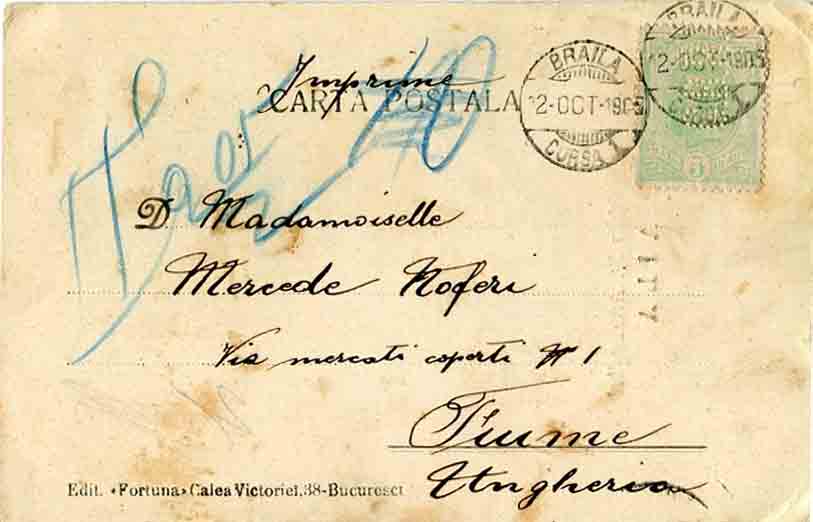 Imprime
CARTA POSTALA
BRAILA
12-OCT-1905
CURSA 1
BRAILA
12-OCT-1905
5
D Madamoiselle
Mercede Noferi
Via mercati coperti N 1
Fiume
Ungheria
Edit. «Fortuna» Calea Victoriei, 38-Bucuresci